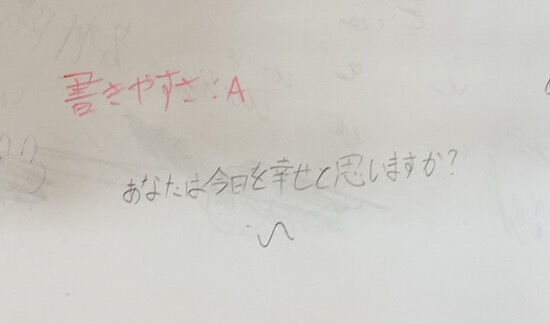 書きやすさ:A
あなたは今日を幸せと思いますか?